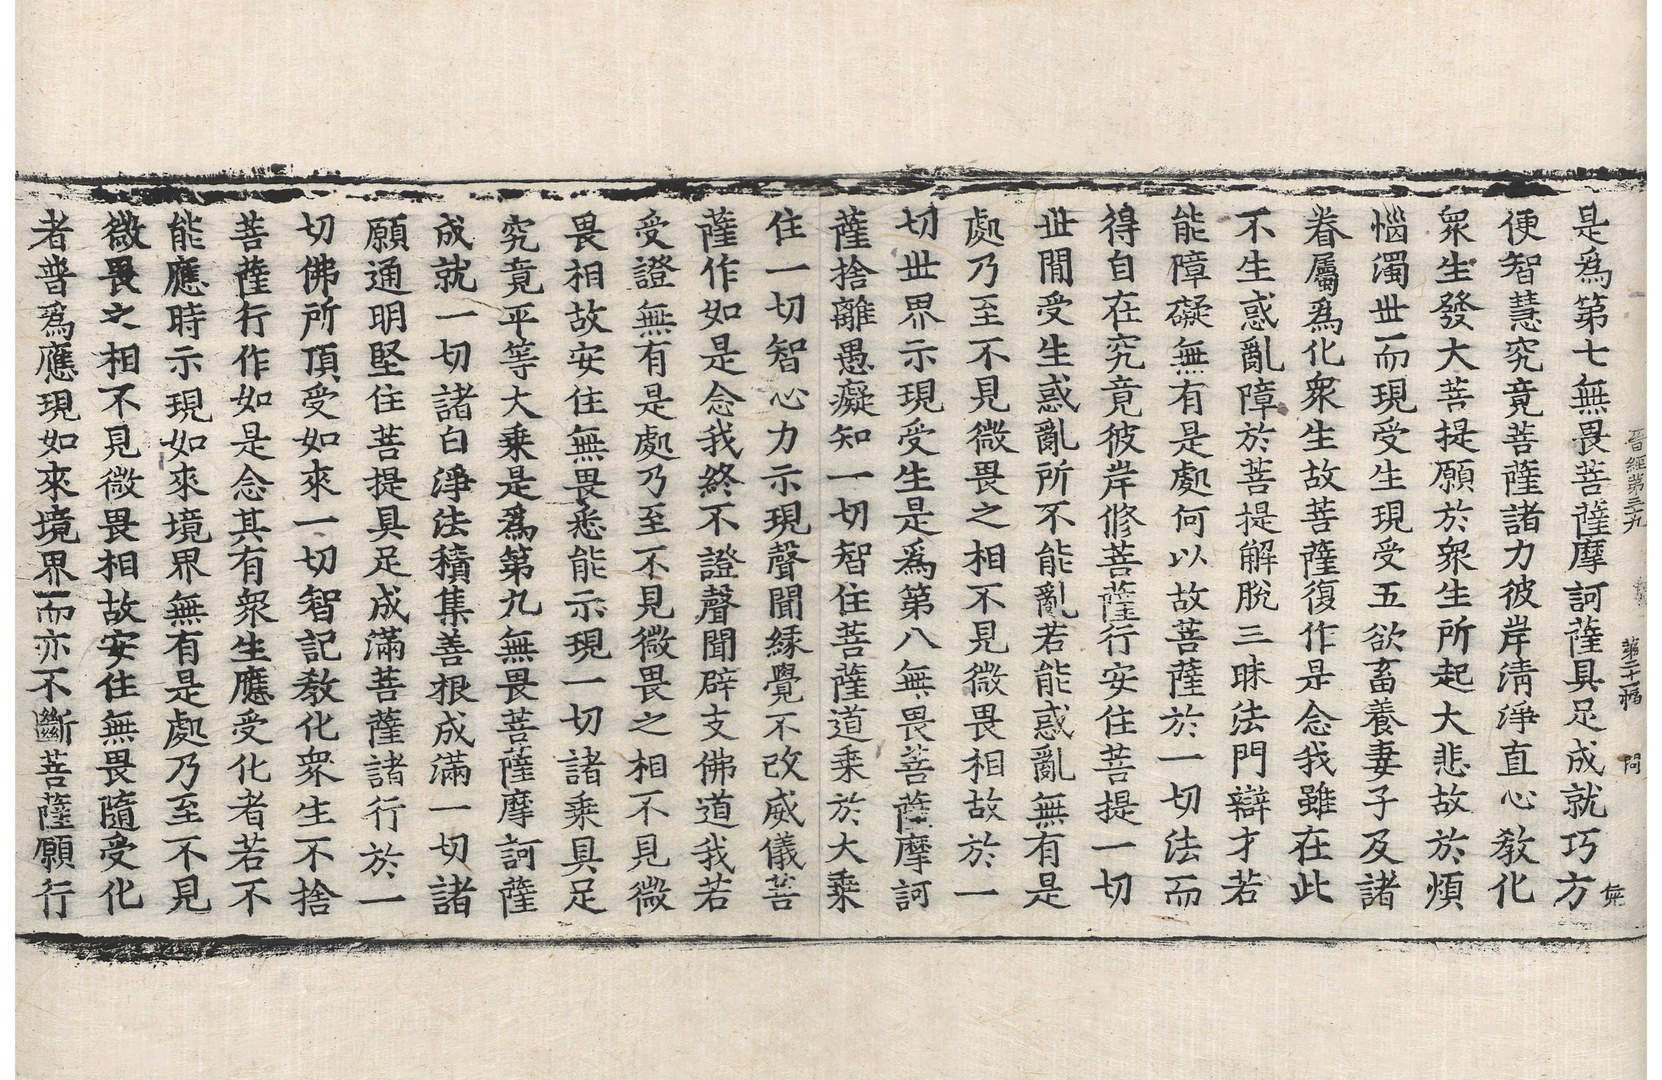 晋經第三九 第二十一幅 問
是爲第七無畏菩薩摩訶薩具足成就巧方
便智慧究竟菩薩諸力彼岸清淨直心教化
衆生發大菩提願於衆生所起大悲故於煩
惱濁世而現受生現受五欲畜養妻子及諸
眷屬爲化衆生故菩薩復作是念我雖在此
不生惑亂障於菩提解脫三昧法門辯才若
能障礙無有是處何以故菩薩於一切法而
得自在究竟彼岸修菩薩行安住菩提一切
世間受生惑亂所不能亂若能惑亂無有是
處乃至不見微畏之相不見微畏相故於一
切世界示現受生是爲第八無畏菩薩摩訶
薩捨離愚癡知一切智住菩薩道乘於大乘
住一切智心力示現聲聞緣覺不改威儀菩
薩作如是念我終不證聲聞辟支佛道我若
受證無有是處乃至不見微畏之相不見微
畏相故安住無畏悉能示現一切諸乘具足
究竟平等大乘是爲第九無畏菩薩摩訶薩
成就一切諸白淨法積集善根成滿一切諸
願通明堅住菩提具足成滿菩薩諸行於一
切佛所頂受如來一切智記教化衆生不捨
菩薩行作如是念其有衆生應受化者若不
能應時示現如來境界無有是處乃至不見
微畏之相不見微畏相故安住無畏隨受化
者普爲應現如來境界而亦不斷菩薩願行